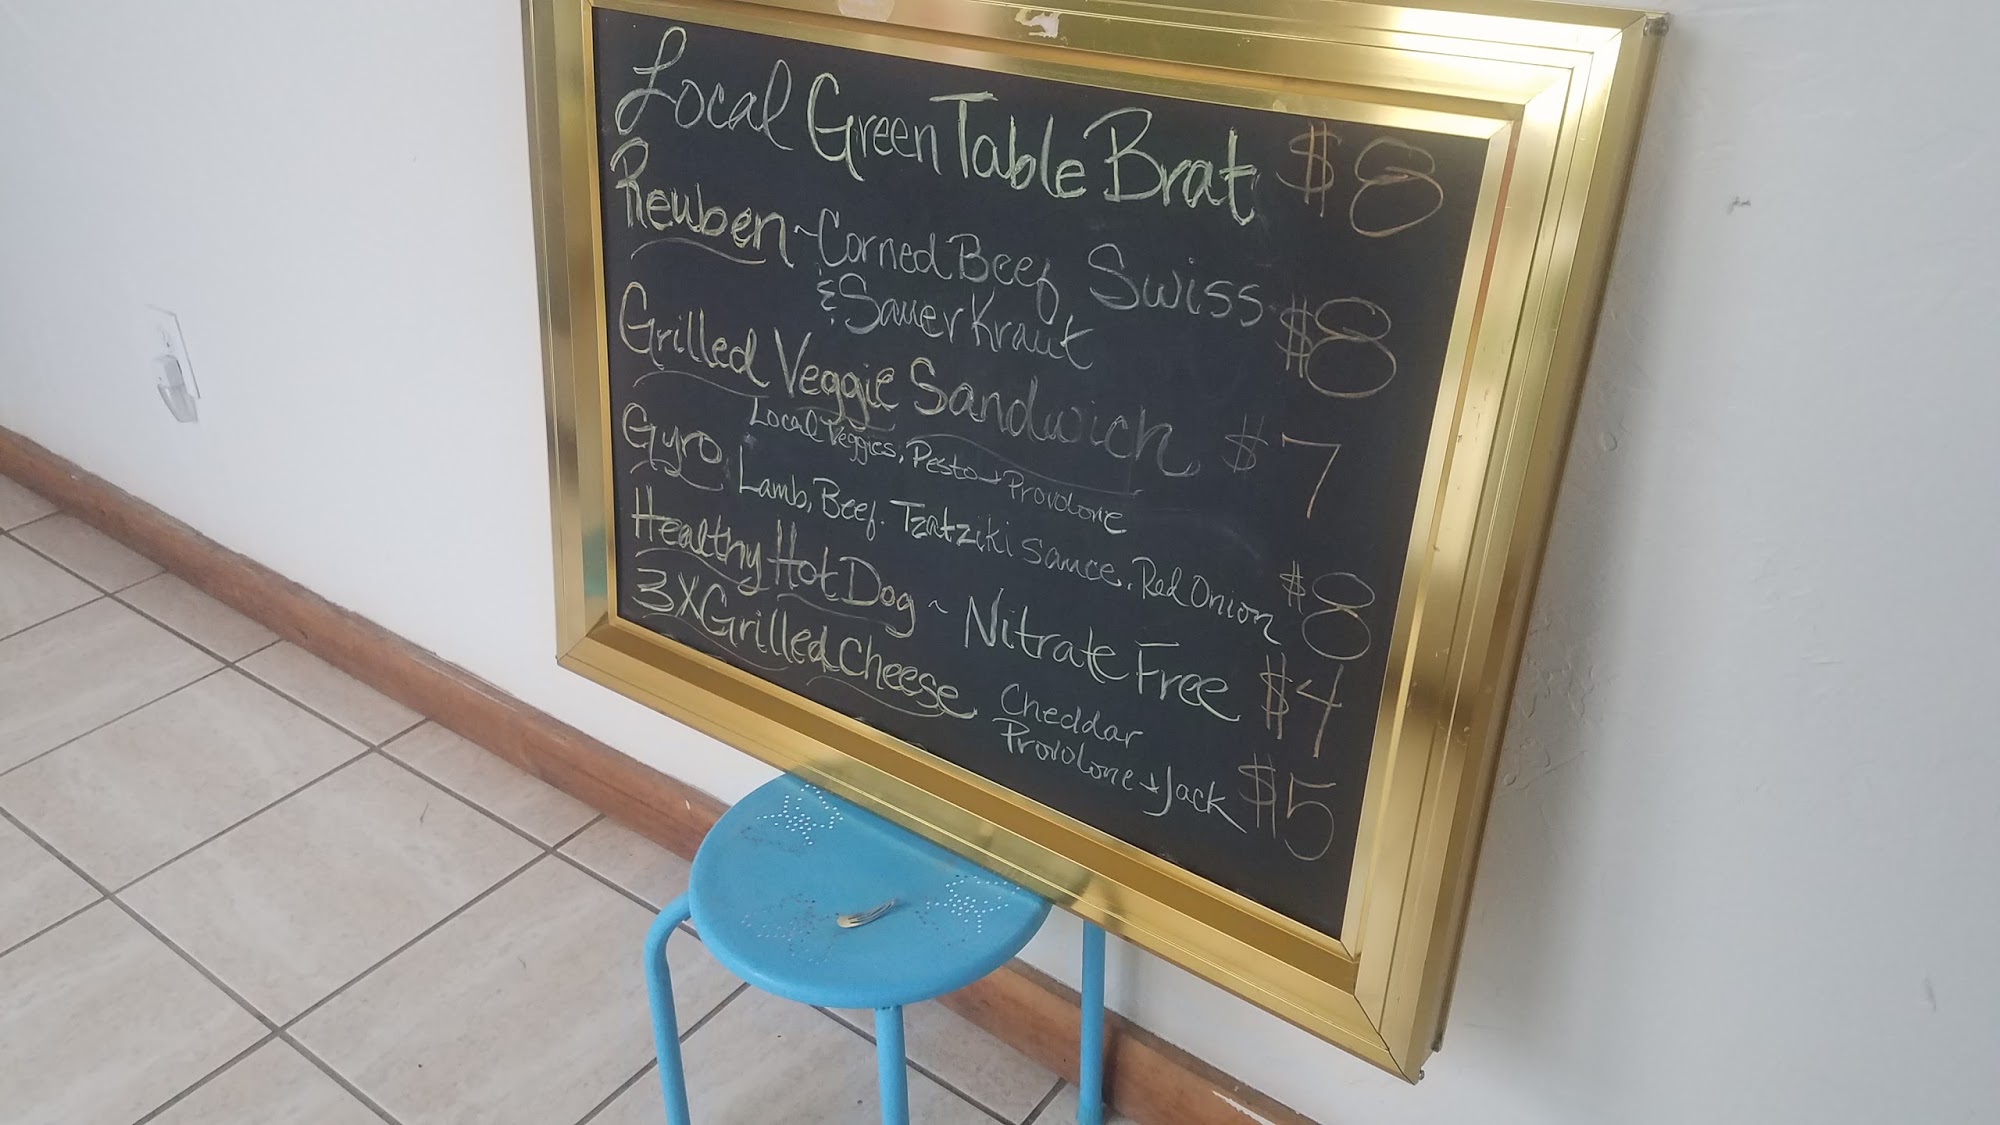 Local Green Table Brat $8
Reuben ~ Corned Beef Swiss
& Sauer Kraut $8
Grilled Veggie Sandwich $7
Local Veggies, Pesto + Provolone
Gyro Lamb, Beef. Tzatziki sauce. Red Onion $8
Healthy Hot Dog ~ Nitrate Free $4
3X Grilled Cheese Cheddar
Provolone + Jack $5